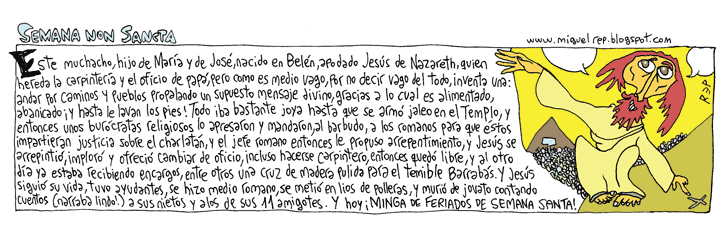 SEMANA NON SANCTA
www.miguelrep.blogspot.com
Este muchacho, hijo de María y de José, nacido en Belén, apodado Jesús de Nazareth, quien
hereda la carpintería y el oficio de papá, pero como es medio vago, por no decir vago del todo, inventa una:
andar por caminos y pueblos propalando un supuesto mensaje divino, gracias a lo cual es alimentado,
abanicado ¡y hasta le lavan los pies! Todo iba bastante joya hasta que se armó jaleo en el Templo, y
entonces unos burócratas religiosos lo apresaron y mandaron, al barbudo, a los romanos para que éstos
impartieran justicia sobre el charlatán, y el jefe romano entonces le propuso arrepentimiento, y Jesús se
arrepintió, imploró y ofreció cambiar de oficio, incluso hacerse carpintero, entonces quedó libre, y al otro
día ya estaba recibiendo encargos, entre otros una cruz de madera pulida para el temible Barrabás. Y Jesús
siguió su vida, tuvo ayudantes, se hizo medio romano, se metió en líos de polleras, y murió de jovato contando
cuentos (narraba lindo!) a sus nietos y a los de sus 11 amigotes. Y hoy ¡MINGA DE FERIADOS DE SEMANA SANTA!
REP